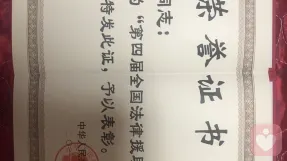 荣誉证书
同志：
为“第四届全国法律援
特发此证，予以表彰。
中华人民